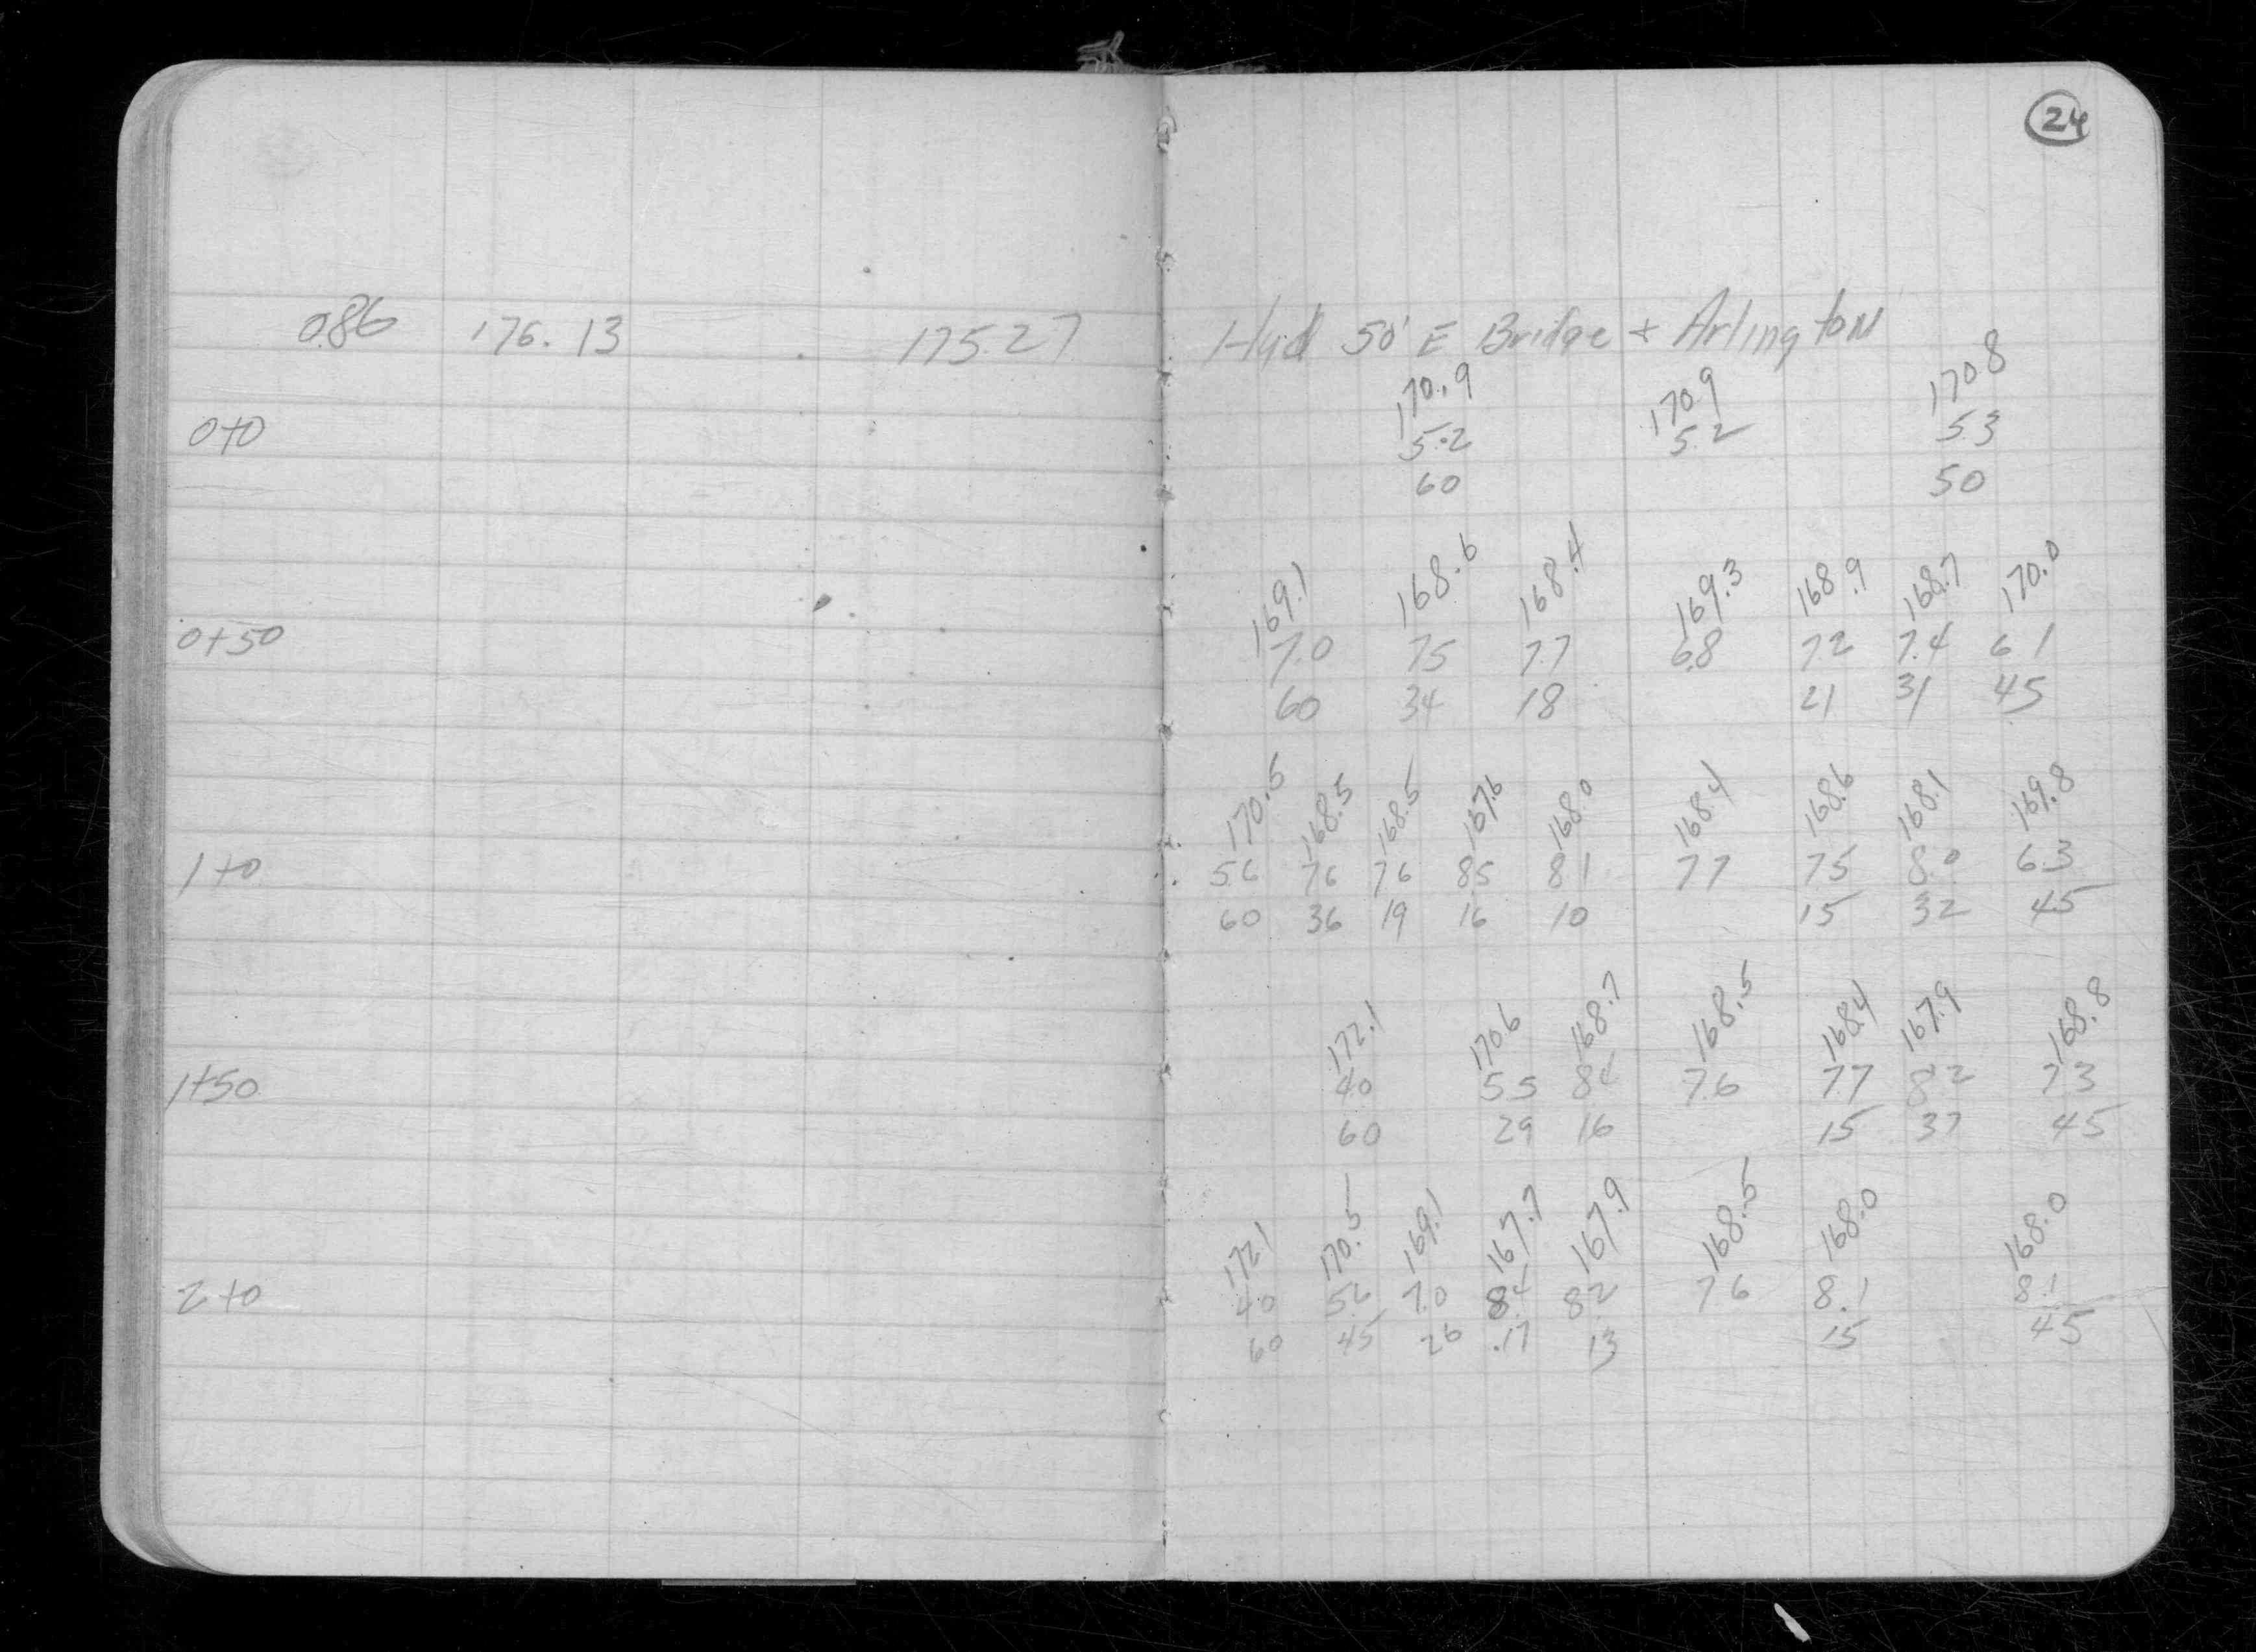 24
0.86 176.13 175.27 Hyd 50' E Bridge + Arlington
170.9 170.9 170.8
0+0 5.2 5.2 5.3
60 50
169.1 168.6 168.4 169.3 168.9 168.7 170.0
0+50 7.0 75 7.7 6.8 7.2 7.4 6 1
60 34 18 21 31 45
170.5 168.5 168.5 167.6 168.0 168.4 168.6 168.1 169.8
1+0 5.6 76 76 85 81 77 75 8.0 6.3
60 36 19 16 10 15 32 45
172.1 170.6 168.7 168.5 168.4 167.9 168.8
1+50 40 55 84 7.6 77 82 73
60 29 16 15 37 45
172.1 170.5 169.1 167.7 167.9 168.5 168.0 168.0
2+0 40 5.6 7.0 8.4 82 76 8.1 8.1
60 45 26 17 13 15 45